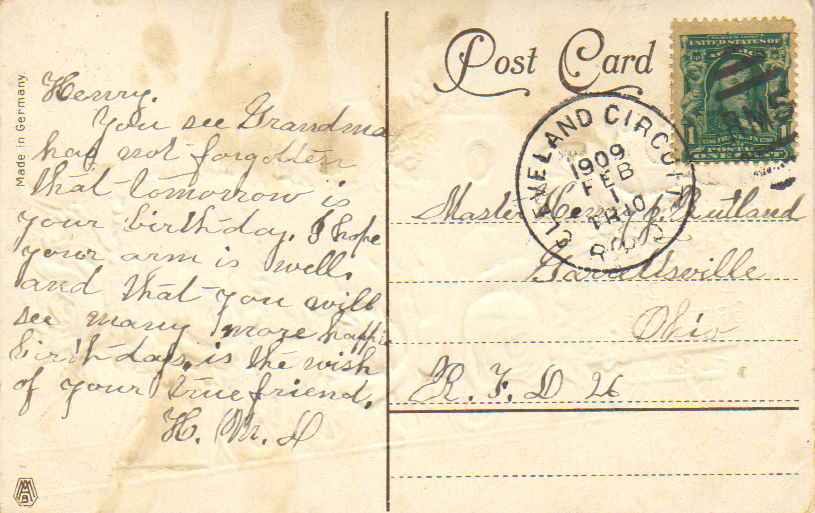 Made in Germany
Henry.
You see Grandma
has not forgotten
that tomorrow is
your birthday. I hope
your arm is well.
and that you will
see many more happie
birthdays. is the wish
of your true friend.
H. M. D
Post Card
UNITED STATES OF
1
1
POSTAGE
ONE CENT
RMS
CLEVELAND CIRCUIT
1909
FEB
1
Master Henry Rutland
Garrettsville
Ohio
R. F. D 26